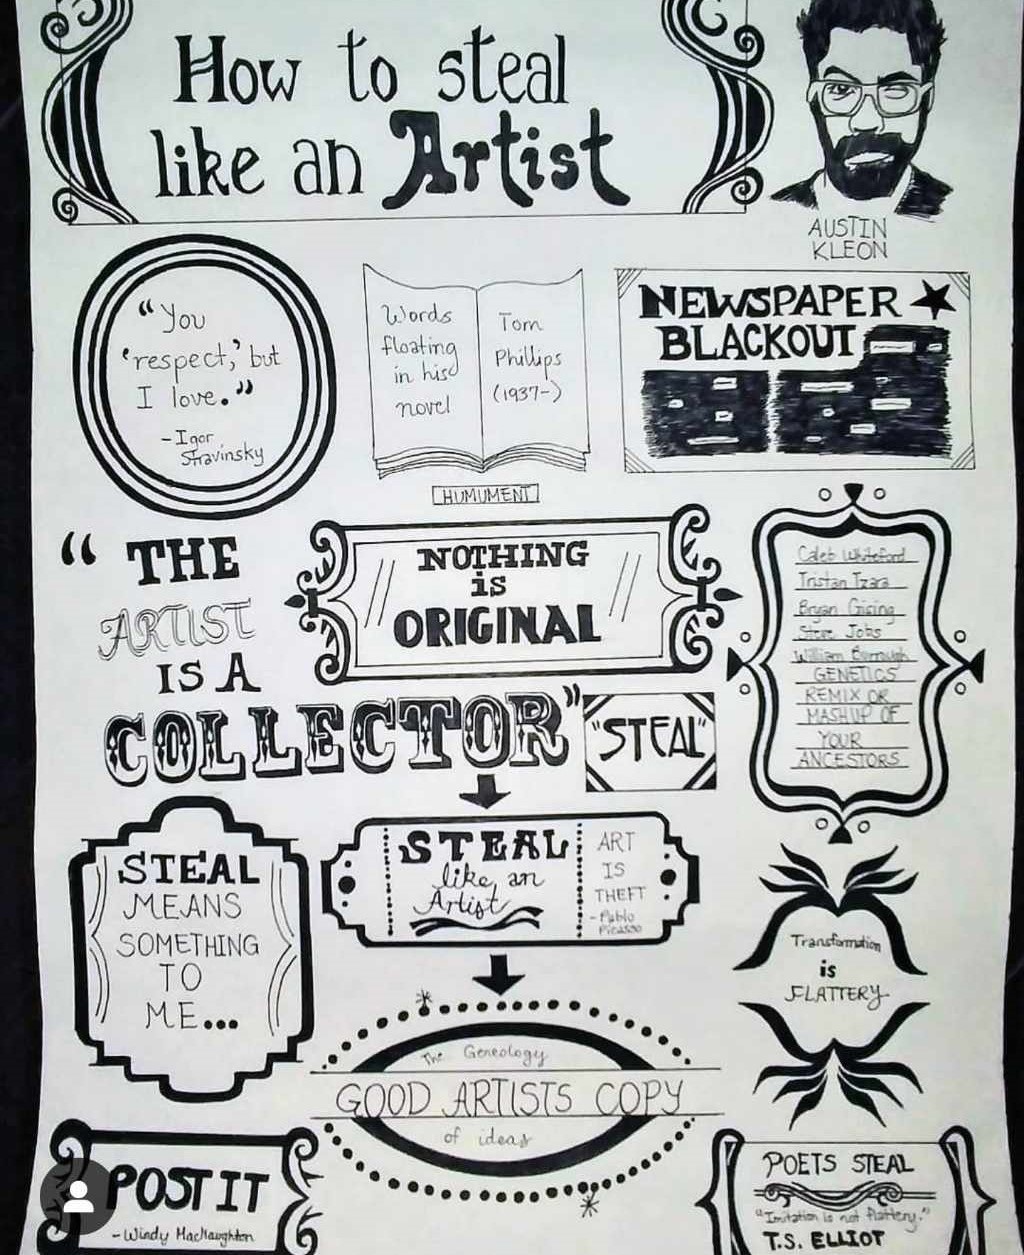 How to steal
like an Artist
AUSTIN
KLEON
"You
'respect,' but
I love."
-Igor
Stravinsky
Words
floating
in his
novel
Tom
Phillips
(1937-)
HUMUMENT
NEWSPAPER
BLACKOUT
"THE
ARTIST
IS A
COLLECTOR"
NOTHING
is
ORIGINAL
"STEAL"
Caleb Whiteford
Tristan Tzara
Bryan Gising
Steve Jobs
William Burrough
GENETICS
REMIX OR
MASHUP OF
YOUR
ANCESTORS
STEAL
MEANS
SOMETHING
TO
ME...
STEAL
like an
Artist
ART
IS
THEFT
-Pablo
Picasso
Transformation
is
FLATTERY
The Geneology
GOOD ARTISTS COPY
of ideas
POST IT
-Windy MacNaughton
POETS STEAL
"Imitation is not flattery."
T.S. ELLIOT